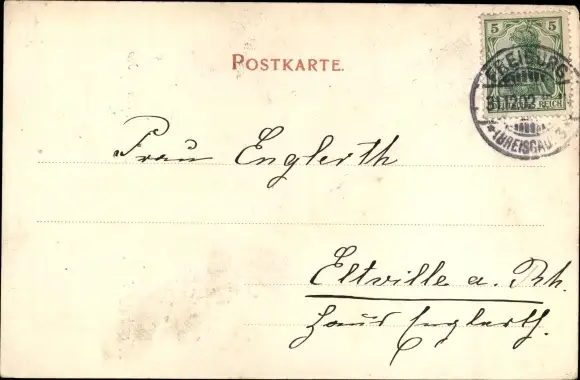 POSTKARTE.
5 5
REICH
FREIBURG
31.12.02
(BREISGAU)
Frau Englerth
Eltville a. Rh.
Haus Englerth.